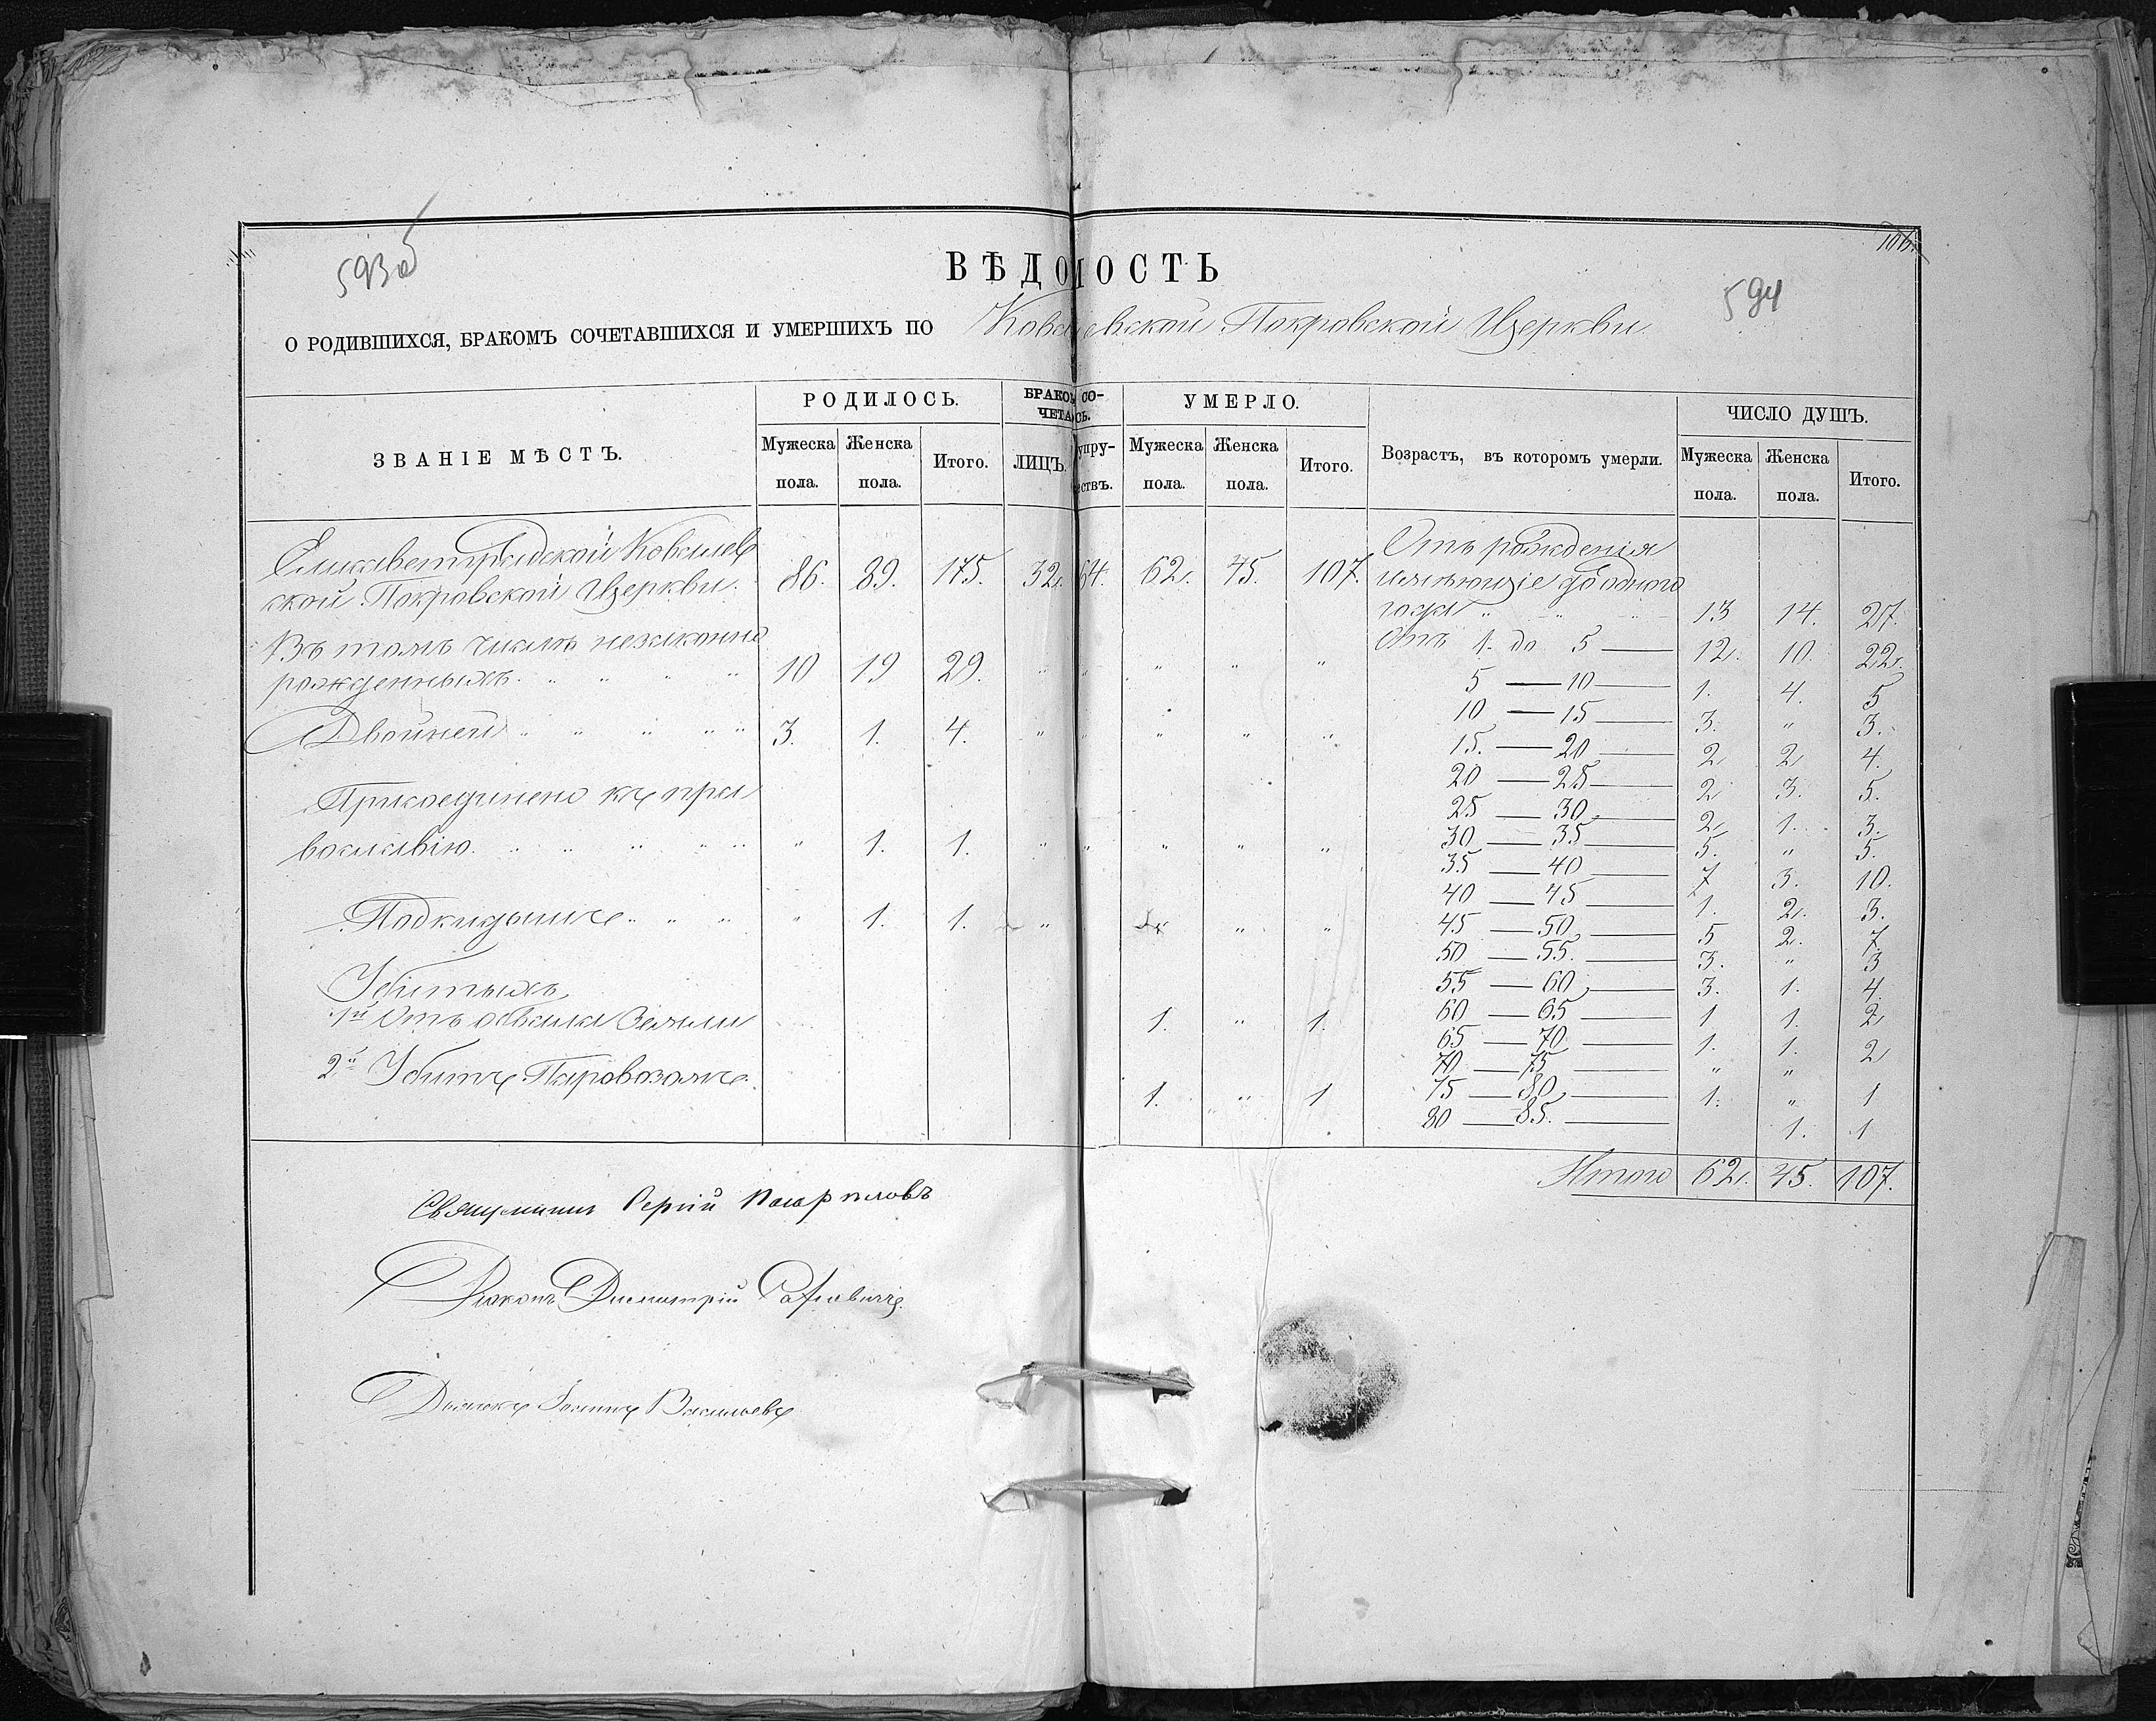 593об
106
ВѢДОМОСТЬ
594
О РОДИВШИХСЯ, БРАКОМЪ СОЧЕТАВШИХСЯ И УМЕРШИХЪ ПО Ковалевской Покровской Церкви.
ЗВАНІЕ МѢСТЪ. РОДИЛОСЬ. БРАКОМ СО- УМЕРЛО. Возрастъ, въ которомъ умерли. ЧИСЛО ДУШЪ.
ЧЕТАСЬ.
Мужеска Женска Итого. ЛИЦЪ. упру- Мужеска Женска Итого. Мужеска Женска Итого.
пола. пола. ествъ. пола. пола. пола. пола.
Елисаветградской Ковалев
ской Покровской Церкви. 86. 89. 175. 32. 64. 62. 45. 107.
Въ томъ числѣ незаконно
рожденныхъ. " " " " 10 19 29. " " " " "
Двойней " " " " " 3. 1. 4. " " " " "
Присоединено къ пра
вославію. " " " " " " 1. 1. " " " " "
Подкидышъ " " " " 1. 1. " " "
Убитыхъ
1й Отъ обвала Земли 1. " 1.
2й Убитъ Паровозомъ. 1. " 1
Отъ рожденія
имѣющіе до одного
года " " " 13 14. 27.
Отъ 1. до 5 — 12. 10. 22.
5 — 10 — 1. 4. 5
10 — 15 — 3. " 3.
15. — 20 — 2 2 4.
20 — 25 — 2 3. 5.
25 — 30 — 2 1. 3.
30 — 35 — 5. " 5.
35 — 40 — 7 3. 10.
40 — 45 — 1. 2. 3.
45 — 50 — 5 2. 7.
50 — 55. — 3. " 3
55 — 60 — 3. 1. 4.
60 — 65 — 1 1. 2
65 — 70 — 1. 1. 2
70 — 75 — " "
75 — 80 — 1. " 1
80 — 85. — 1. 1
Итого 62. 45. 107.
Священникъ Сергій
Діаконъ Димитрій
Дьячокъ Іоаннъ Васильевъ